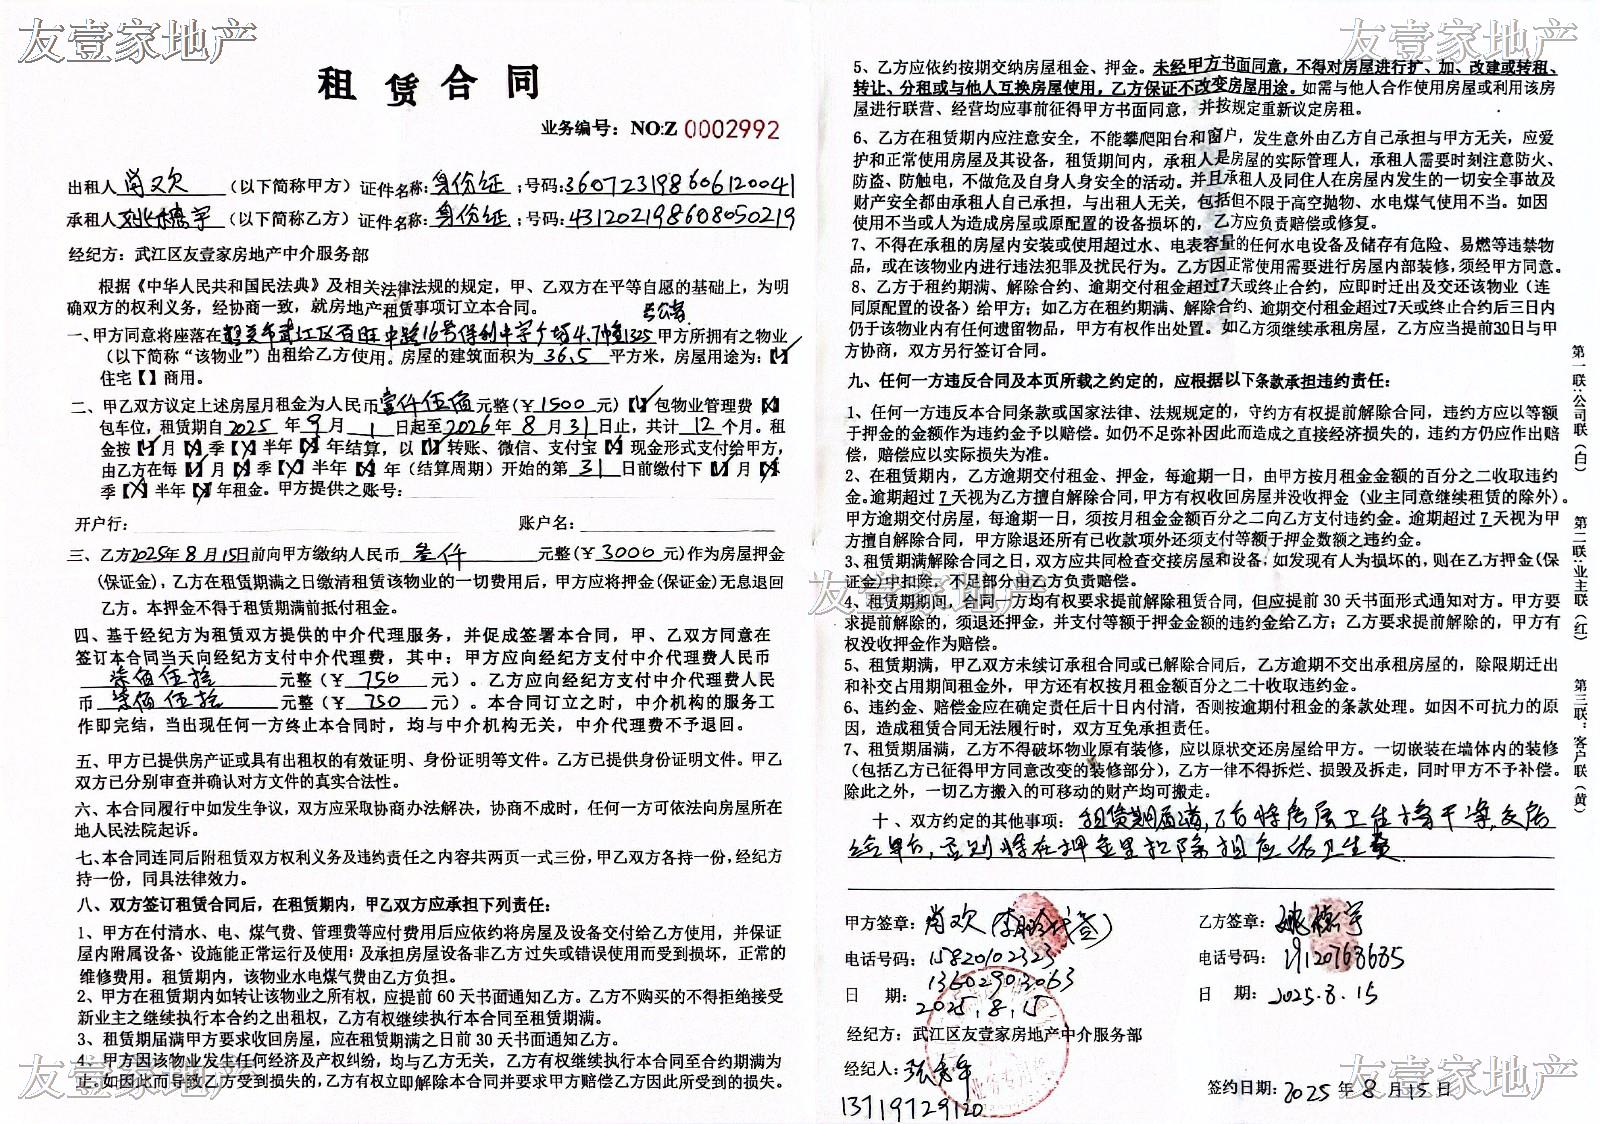 友壹家地产
友壹家地产
租赁合同
业务编号：NO:Z 0002992
出租人 肖又欢 （以下简称甲方）证件名称: 身份证 ; 号码: 360723198606120041
承租人 姚德宇 （以下简称乙方）证件名称: 身份证 ; 号码: 431202198608050219
经纪方：武江区友壹家房地产中介服务部
根据《中华人民共和国民法典》及相关法律法规的规定，甲、乙双方在平等自愿的基础上，为明
确双方的权利义务，经协商一致，就房地产租赁事项订立本合同。
一、甲方同意将座落在韶关市武江区百旺中路16号保利中宇广场4.7幢1325 甲方所拥有之物业
（以下简称“该物业”）出租给乙方使用。房屋的建筑面积为 36.5 平方米，房屋用途为：【✓】
住宅【】商用。
二、甲乙双方议定上述房屋月租金为人民币壹仟伍佰元整(￥1500 元)【✓】包物业管理费【X】
包车位，租赁期自2025 年 9 月 1 日起至2026年 8 月 31日止，共计 12 个月。租
金按【✓】月【X】季【X】半年【X】年结算，以【✓】转账、微信、支付宝【X】现金形式支付给甲方，
由乙方在每【✓】月【X】季【X】半年【X】年（结算周期）开始的第 31 日前缴付下【✓】月【X】
季【X】半年【X】年租金。甲方提供之账号：
开户行： 账户名：
三、乙方2025年 8 月15日前向甲方缴纳人民币 叁仟 元整(￥3000 元)作为房屋押金
(保证金)，乙方在租赁期满之日缴清租赁该物业的一切费用后，甲方应将押金(保证金)无息退回
乙方。本押金不得于租赁期满前抵付租金。
四、基于经纪方为租赁双方提供的中介代理服务，并促成签署本合同，甲、乙双方同意在
签订本合同当天向经纪方支付中介代理费，其中：甲方应向经纪方支付中介代理费人民币
柒佰伍拾 元整（￥ 750 元）。乙方应向经纪方支付中介代理费人民
币 柒佰伍拾 元整（￥ 750 元）。本合同订立之时，中介机构的服务工
作即完结，当出现任何一方终止本合同时，均与中介机构无关，中介代理费不予退回。
五、甲方已提供房产证或具有出租权的有效证明、身份证明等文件。乙方已提供身份证明文件。甲乙
双方已分别审查并确认对方文件的真实合法性。
六、本合同履行中如发生争议，双方应采取协商办法解决，协商不成时，任何一方可依法向房屋所在
地人民法院起诉。
七、本合同连同后附租赁双方权利义务及违约责任之内容共两页一式三份，甲乙双方各持一份，经纪方
持一份，同具法律效力。
八、双方签订租赁合同后，在租赁期内，甲乙双方应承担下列责任：
1、甲方在付清水、电、煤气费、管理费等应付费用后应依约将房屋及设备交付给乙方使用，并保证
屋内附属设备、设施能正常运行及使用；及承担房屋设备非乙方过失或错误使用而受到损坏，正常的
维修费用。租赁期内，该物业水电煤气费由乙方负担。
2、甲方在租赁期内如转让该物业之所有权，应提前 60 天书面通知乙方。乙方不购买的不得拒绝接受
新业主之继续执行本合约之出租权，乙方有权继续执行本合同至租赁期满。
3、租赁期届满甲方要求收回房屋，应在租赁期满之日前 30 天书面通知乙方。
4、甲方因该物业发生任何经济及产权纠纷，均与乙方无关，乙方有权继续执行本合同至合约期满为
止。如因此而导致乙方受到损失的，乙方有权立即解除本合同并要求甲方赔偿乙方因此所受到的损失。
友壹家地产
5、乙方应依约按期交纳房屋租金、押金。未经甲方书面同意，不得对房屋进行扩、加、改建或转租、
转让、分租或与他人互换房屋使用，乙方保证不改变房屋用途。如需与他人合作使用房屋或利用该房
屋进行联营、经营均应事前征得甲方书面同意，并按规定重新议定房租。
6、乙方在租赁期内应注意安全，不能攀爬阳台和窗户，发生意外由乙方自己承担与甲方无关，应爱
护和正常使用房屋及其设备，租赁期间内，承租人是房屋的实际管理人，承租人需要时刻注意防火、
防盗、防触电，不做危及自身人身安全的活动。并且承租人及同住人在房屋内发生的一切安全事故及
财产安全都由承租人自己承担，与出租人无关，包括但不限于高空抛物、水电煤气使用不当。如因
使用不当或人为造成房屋或原配置的设备损坏的，乙方应负责赔偿或修复。
7、不得在承租的房屋内安装或使用超过水、电表容量的任何水电设备及储存有危险、易燃等违禁物
品，或在该物业内进行违法犯罪及扰民行为。乙方因正常使用需要进行房屋内部装修,须经甲方同意。
8、乙方于租约期满、解除合约、逾期交付租金超过7天或终止合约，应即时迁出及交还该物业（连
同原配置的设备）给甲方；如乙方在租约期满、解除合约、逾期交付租金超过7天或终止合约后三日内
仍于该物业内有任何遗留物品，甲方有权作出处置。如乙方须继续承租房屋，乙方应当提前30日与甲
方协商，双方另行签订合同。
九、任何一方违反合同及本页所载之约定的，应根据以下条款承担违约责任：
1、任何一方违反本合同条款或国家法律、法规规定的，守约方有权提前解除合同，违约方应以等额
于押金的金额作为违约金予以赔偿。如仍不足弥补因此而造成之直接经济损失的，违约方仍应作出赔
偿，赔偿应以实际损失为准。
2、在租赁期内，乙方逾期交付租金、押金，每逾期一日，由甲方按月租金金额的百分之二收取违约
金。逾期超过 7 天视为乙方擅自解除合同,甲方有权收回房屋并没收押金（业主同意继续租赁的除外）。
甲方逾期交付房屋，每逾期一日，须按月租金金额百分之二向乙方支付违约金。逾期超过 7 天视为甲
方擅自解除合同，甲方除退还所有已收款项外还须支付等额于押金数额之违约金。
3、租赁期满解除合同之日，双方应共同检查交接房屋和设备；如发现有人为损坏的，则在乙方押金(保
证金)中扣除，不足部分由乙方负责赔偿。
友壹家地产
4、租赁期期间，合同一方均有权要求提前解除租赁合同，但应提前 30 天书面形式通知对方。甲方要
求提前解除的，须退还押金，并支付等额于押金金额的违约金给乙方；乙方要求提前解除的，甲方有
权没收押金作为赔偿。
5、租赁期满，甲乙双方未续订承租合同或已解除合同后，乙方逾期不交出承租房屋的，除限期迁出
和补交占用期间租金外，甲方还有权按月租金额百分之二十收取违约金。
6、违约金、赔偿金应在确定责任后十日内付清，否则按逾期付租金的条款处理。如因不可抗力的原
因，造成租赁合同无法履行时，双方互免承担责任。
7、租赁期届满，乙方不得破坏物业原有装修，应以原状交还房屋给甲方。一切嵌装在墙体内的装修
（包括乙方已征得甲方同意改变的装修部分），乙方一律不得拆烂、损毁及拆走，同时甲方不予补偿。
除此之外，一切乙方搬入的可移动的财产均可搬走。
十、双方约定的其他事项：租赁期届满，乙方将房屋卫生搞干净，交房
给甲方，否则将在押金里扣除相应的卫生费
甲方签章：肖欢（代签） 乙方签章：姚德宇
电话号码：15820102323 电话号码：19120768685
13602903063
日 期：2025.8.15 日 期：2025.8.15
经纪方：武江区友壹家房地产中介服务部
经纪人：
13719729120
业务专用章
签约日期：2025 年 8 月 15 日
友壹家地产
第一联：公司联（白）
第二联：业主联（红）
第三联：客户联（黄）